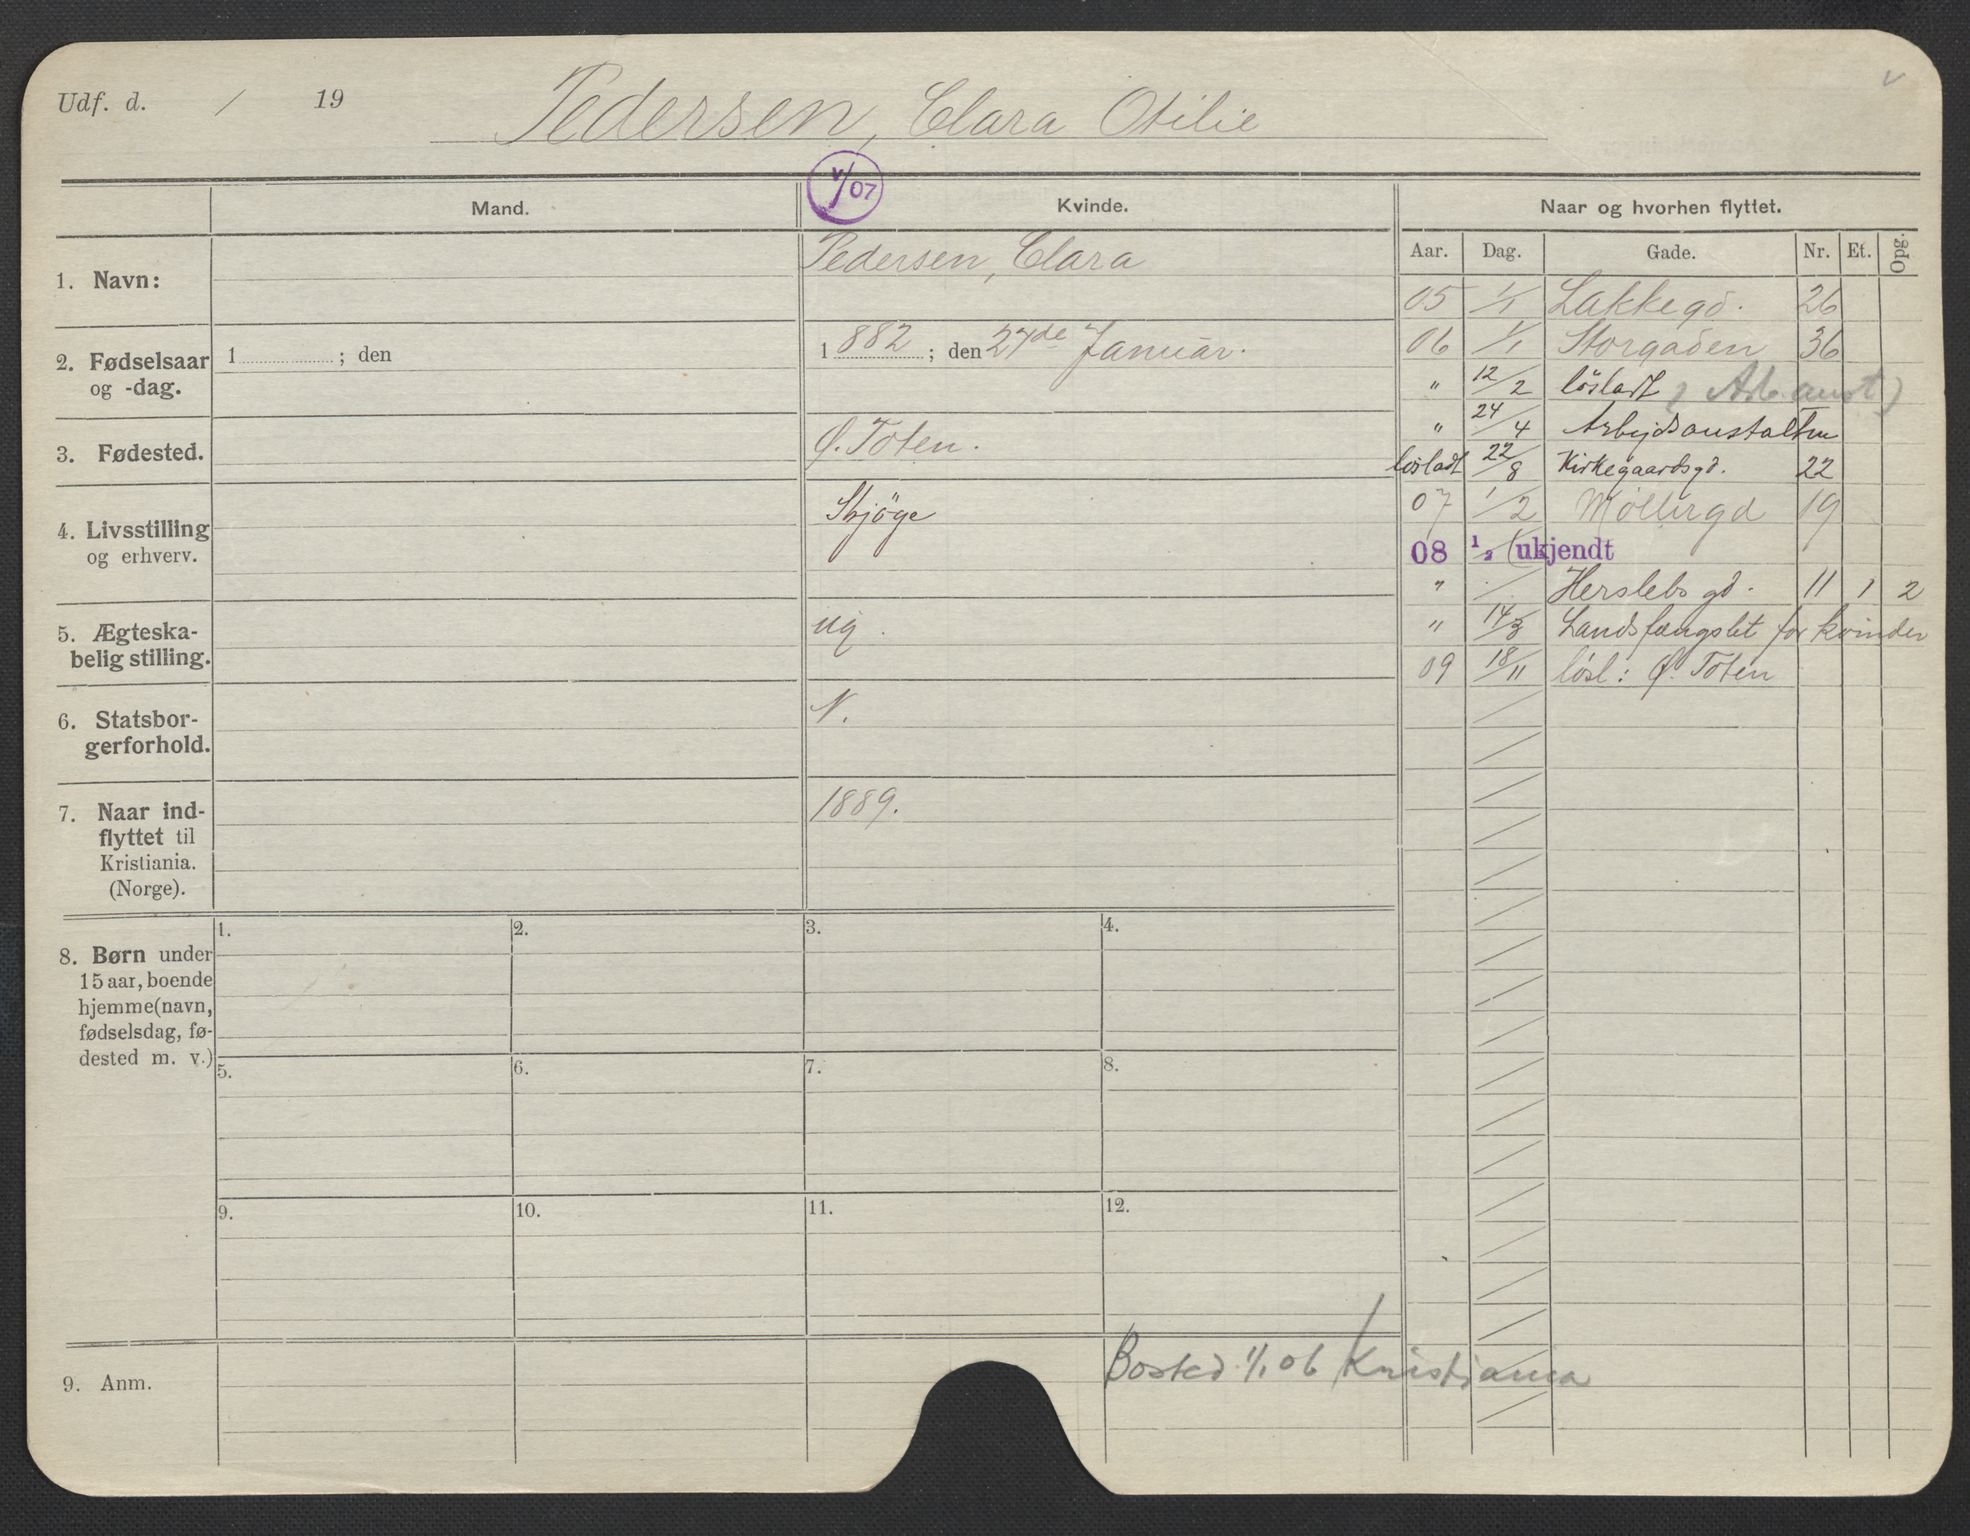 Udf. d. / 19 Pedersen, Clara Otilie
v/07
Mand. Kvinde. Naar og hvorhen flyttet.
Aar. Dag. Gade. Nr. Et. Opg.
1. Navn: Pedersen, Clara
2. Fødselsaar og -dag. 1 ; den 1 882 ; den 27de Januar.
3. Fødested. Ø. Toten.
4. Livsstilling og erhverv. Skjöge
5. Ægteska-
belig stilling. ug.
6. Statsbor-
gerforhold. N.
7. Naar ind-
flyttet til
Kristiania.
(Norge). 1889.
05 1/1 Lakkegd. 26
06 1/1 Storgaden 36
" 12/2 lösladt (Arb. anst)
" 24/4 Arbejdsanstalten
løsladt 22/8 Kirkegaardsgd. 22
07 1/2 Møllergd 19
08 1/2 (ukjendt
" / Herslebs gd. 11 1 2
" 14/3 Landsfængslet for kvinder
09 18/11 løsl: Ø. Toten
8. Børn under
15 aar, boende
hjemme (navn,
fødselsdag, fø-
dested m. v.)
1. 2. 3. 4.
5. 6. 7. 8.
9. 10. 11. 12.
9. Anm.
Bosted 1/1 06 Kristiania